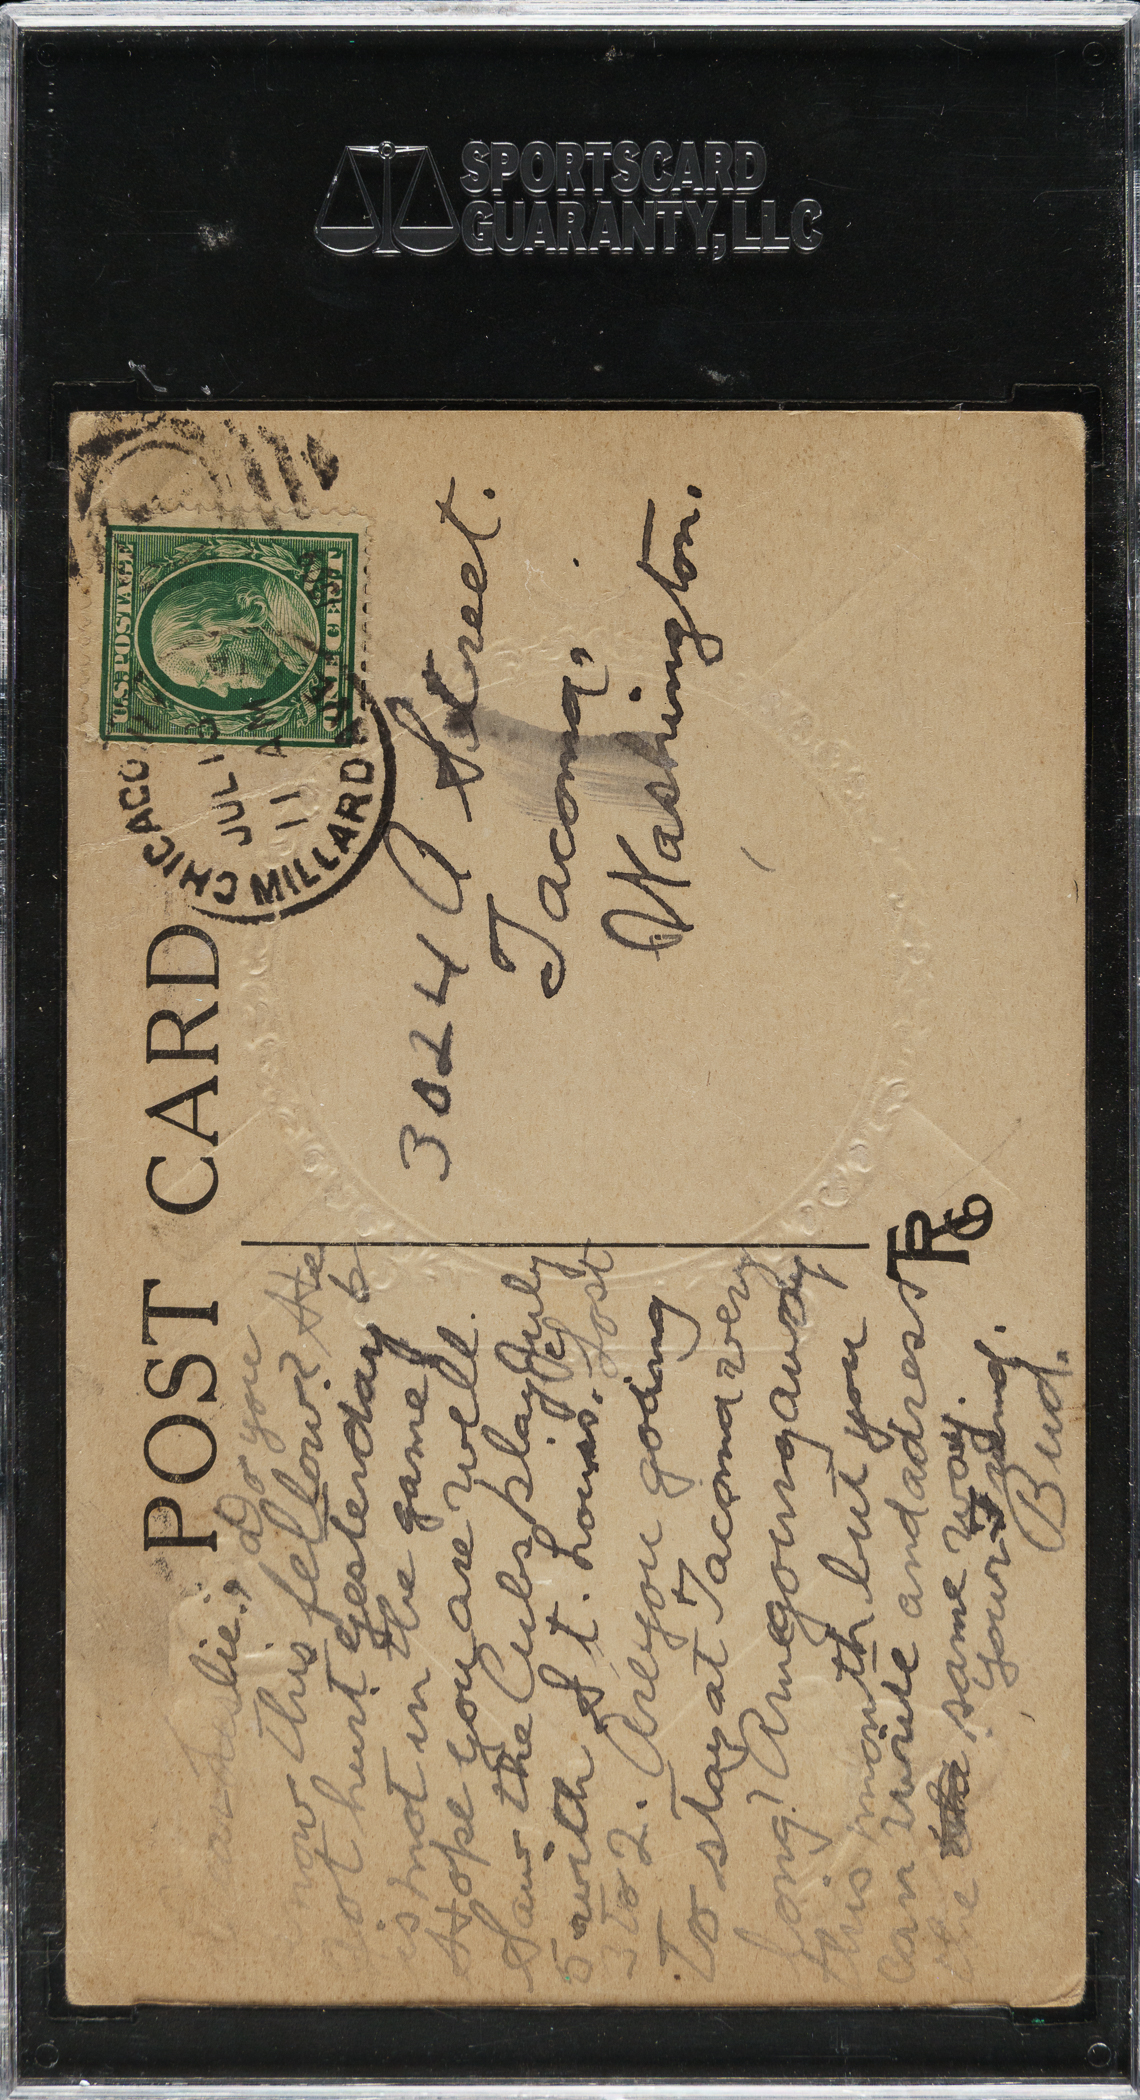 SPORTSCARD
GUARANTY, LLC
POST CARD
CHICAGO, ILL.
JUL 13
11 AM
MILLARD
U.S. POSTAGE
ONE CENT
3024 A Street.
Tacoma,
Washington.
, Do you
now this fellow? He
got hurt yesterday &
is not in the game.
Hope you are well.
Saw the Cubs play July
5 with St. Louis. Lost
3 to 2. Are you going
to stay at Tacoma very
long? Am going away
this month but you
can write and adress
the same way.
Your friend.
Bud.